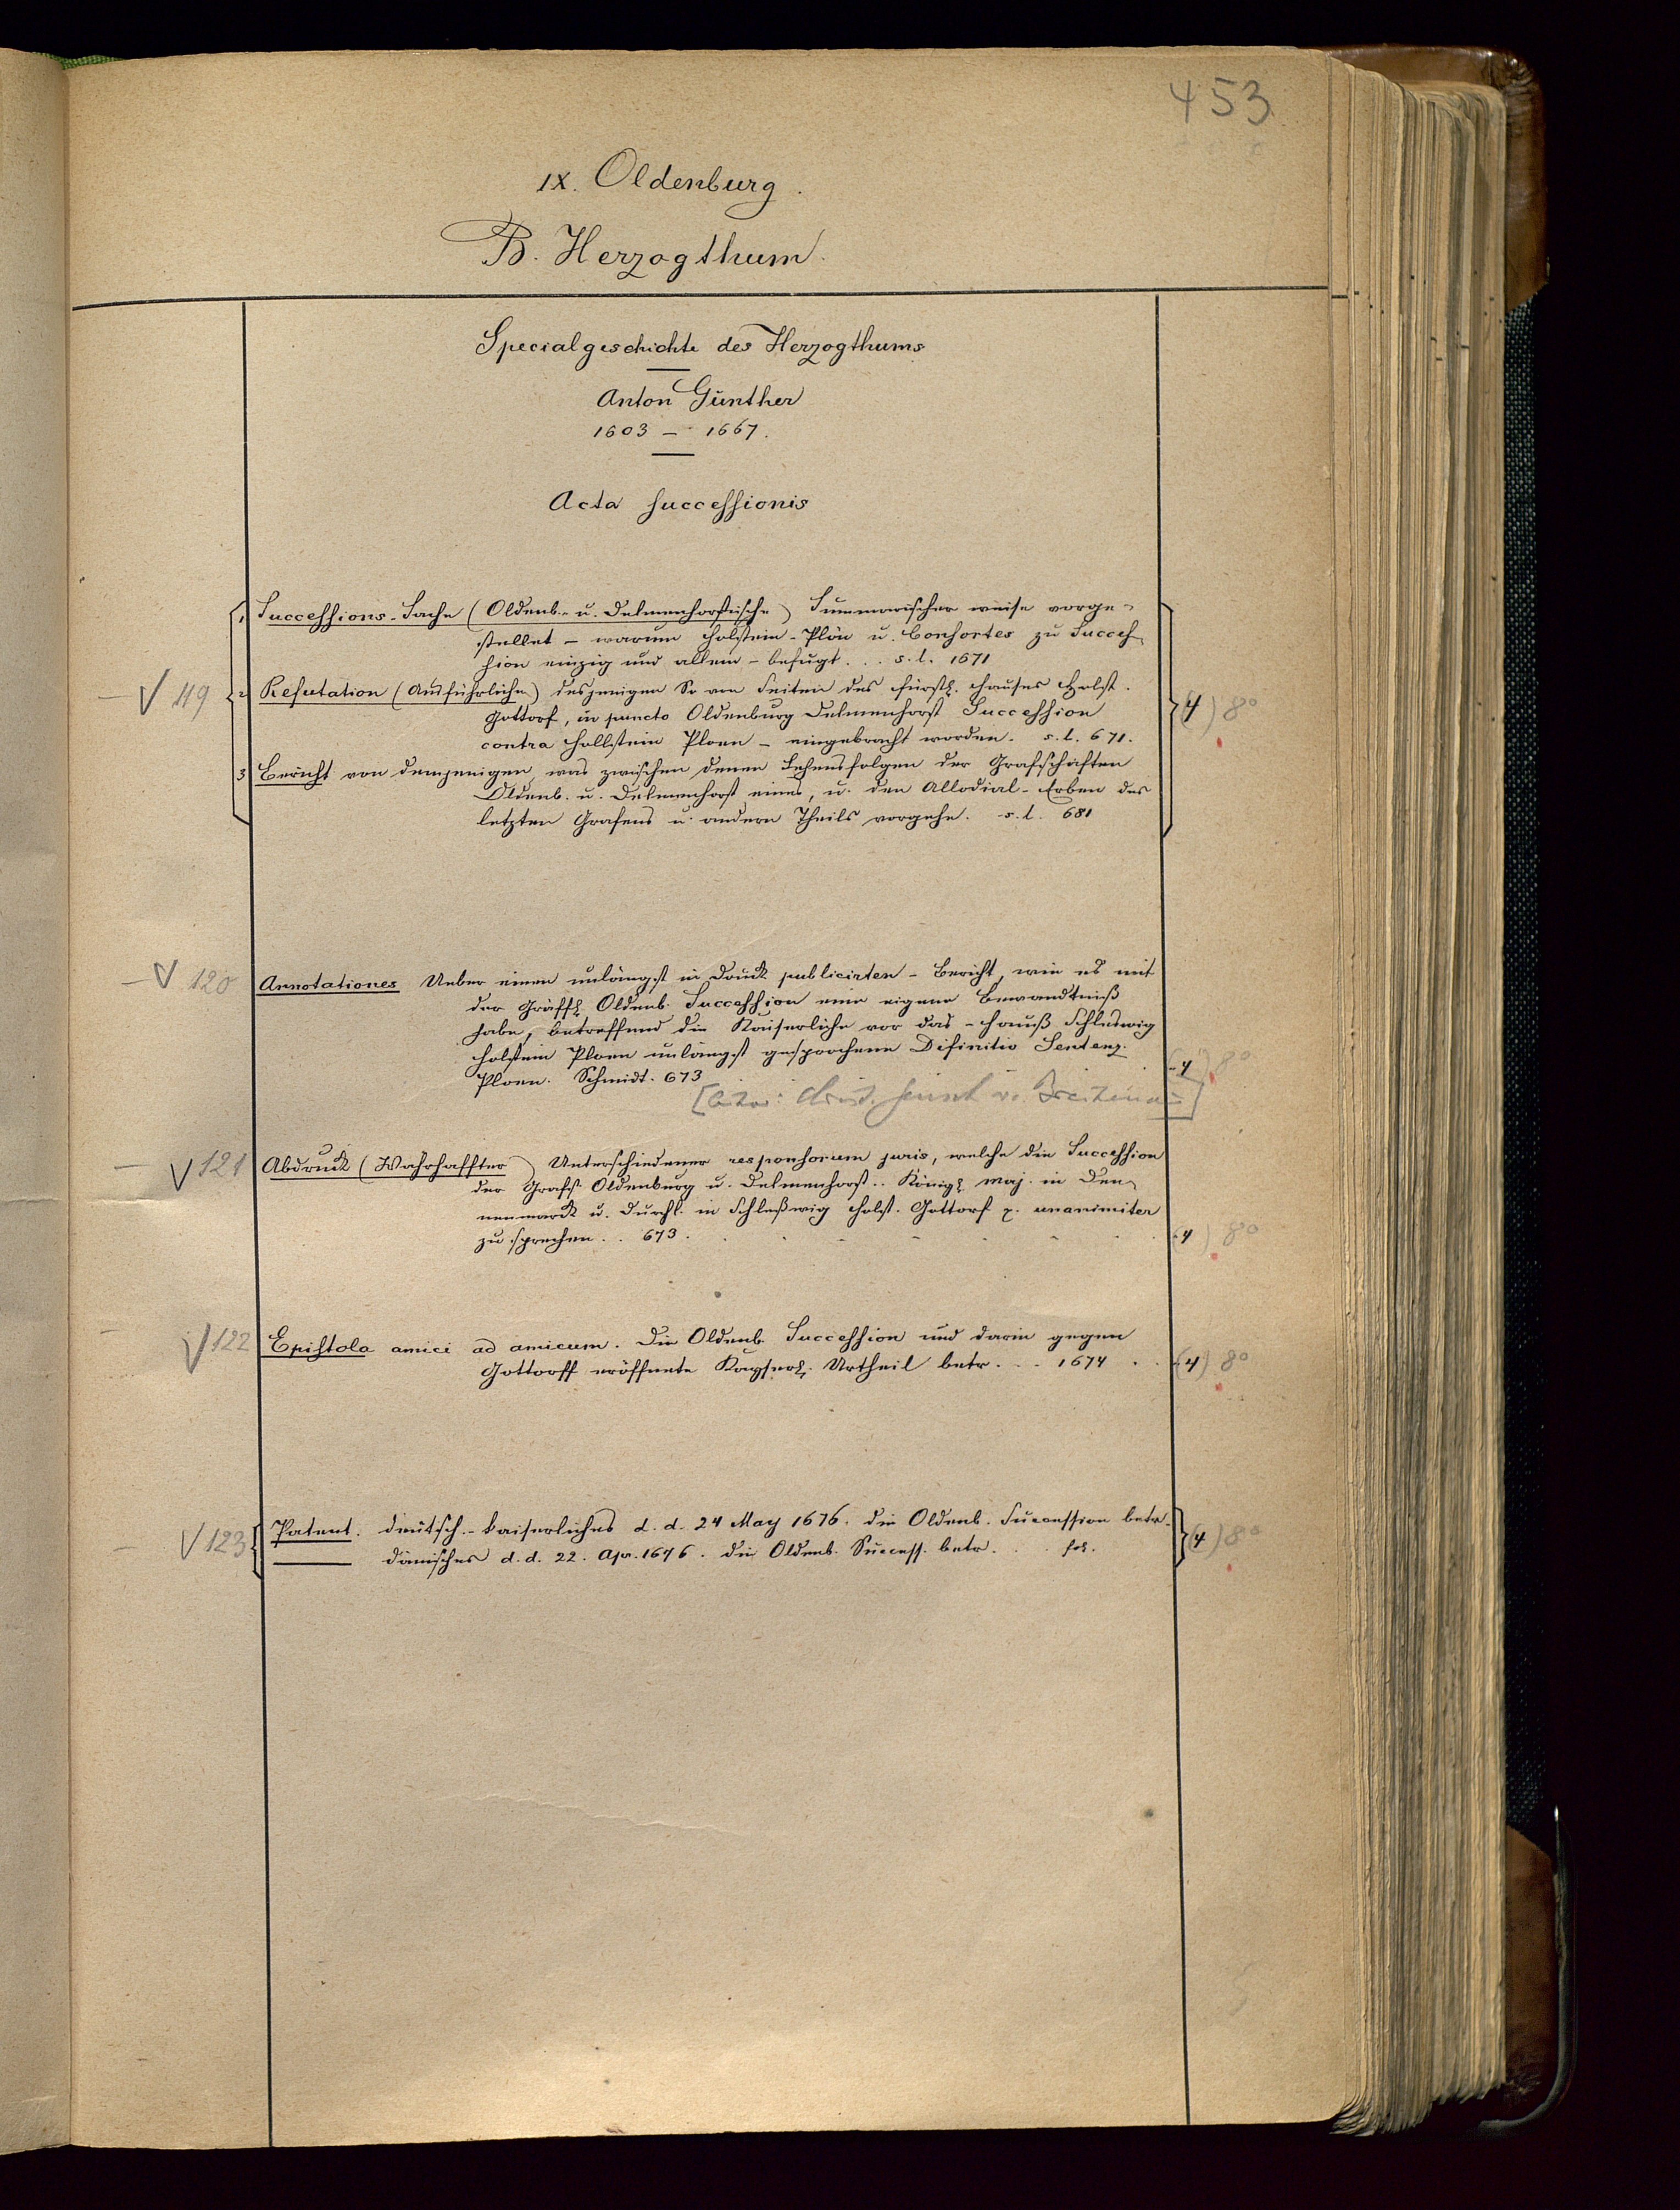 453
IX. Oldenburg.
B. Herzogthum.
Specialgeschichte des Herzogthums
Anton Günther
1603 – 1667.
Acta successionis
1 Successions-Sache (Oldenb.- u. Delmenhorstische) Summarischer weise vorge-
stellet – warum Holstein-Plön u. Consortes zu Succes-
sion einzig und allein – befugt... s. l. 1671
– V 119 2 Refutation (Ausführliche) desjenigen So von Seiten des fürstl. Hauses Holst. (4) 8°
Gottorf, in puncto Oldenburg Delmenhorst Succession
contra Hollstein Ploen – eingebracht worden. s. l. 671.
3 Bericht von demjenigen, was zwischen denen Lehensfolgen der Grafschaften
Oldenb. u. Delmenhorst eines, u. den Allodial-Erben des
letzten Grafens u. andern Theils vorgehe. s. l. 681
– V 120 Annotationes Ueber einen unlängst in Druck publicirten – Bericht, wie es mit
der Gräffl. Oldenb. Succession eine eigene Bewandtniß
habe, betreffend die Kaiserliche vor das – Hauß Schleswig
Holstein Ploen unlängst gesprochene Difinitiv Sentenz.
Ploen. Schmidt. 673 (4) 8°
– V 121 Abdruck (Wahrhaffter) Unterschiedener responsorum juris, welche die Succession
der Grafsch. Oldenburg u. Delmenhorst.. Königl. Maj. in Den-
nemarck u. Durchl. in Schleßwig Holst. Gottorf z. unanimiter
zu sprechen. . 673. (4) 8°
– V 122 Epistola amici ad amicum. Die Oldenb. Succession und darin gegen
Gottorff eröffnete Kayserl. Urtheil betr. . . 1674 . . (4) 8°
– V 123 Patent. deutsch.-kaiserliches d. d. 24 May 1676. die Oldenb. Succession betr. (4) 8°
— dänisches d. d. 22. Apr. 1676. die Oldenb. Success. betr. . . fol.